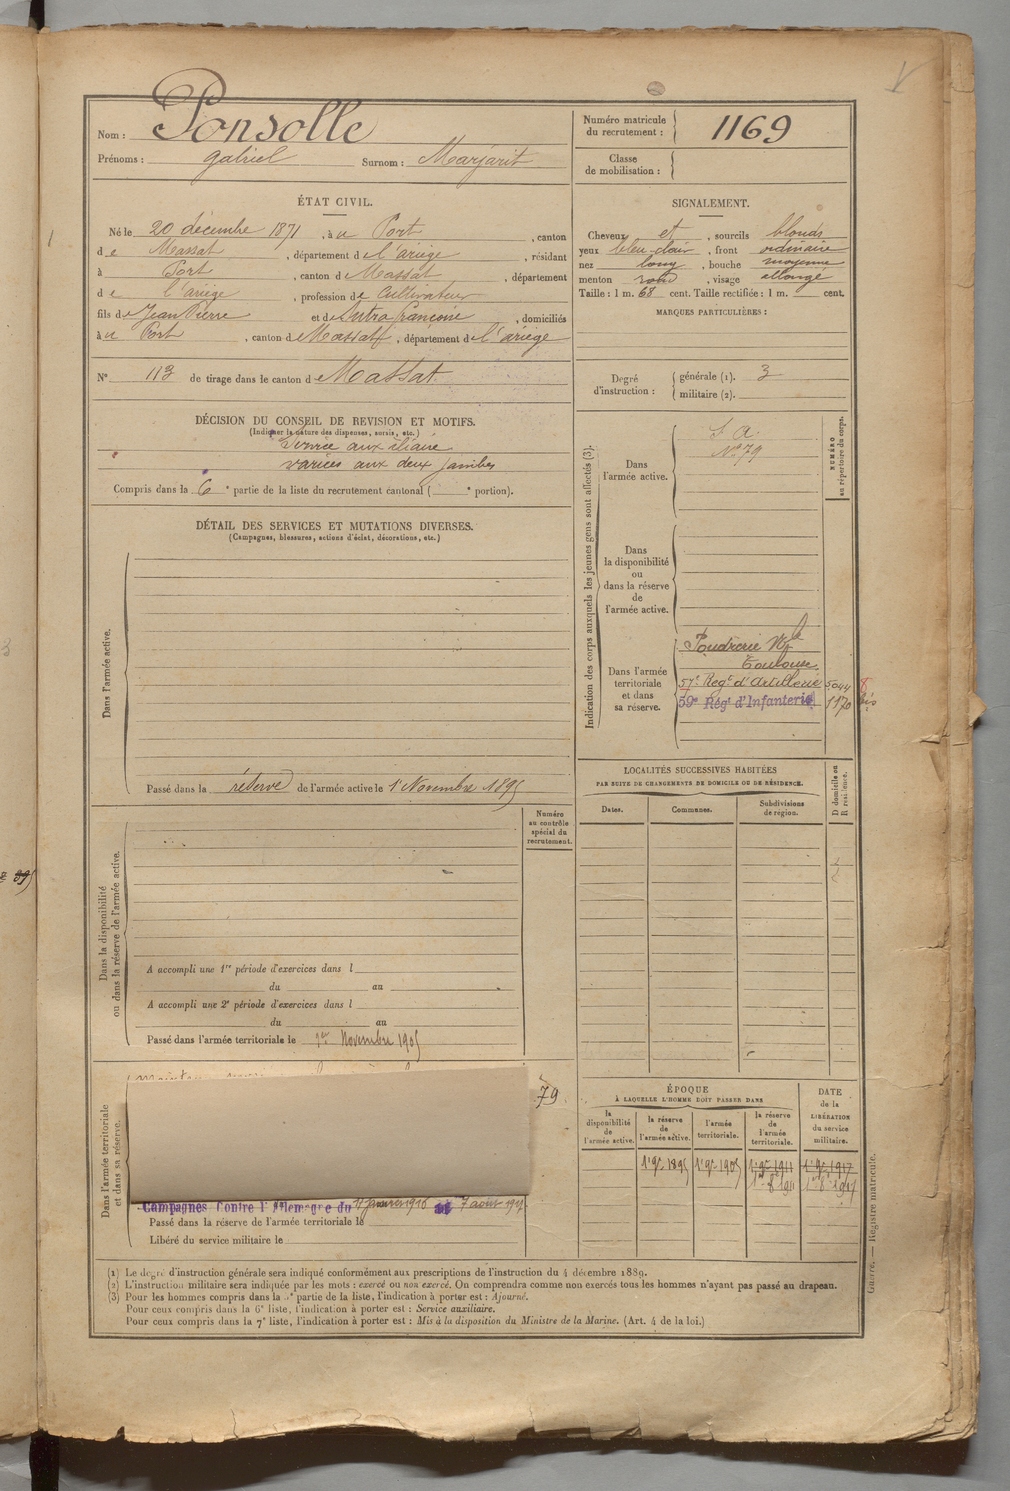 Nom : Ponsolle
Prénoms : gabriel Surnom : Marjarit
Numéro matricule du recrutement : 1169
Classe de mobilisation :
ÉTAT CIVIL.
Né le 20 décembre 1871, à u Port, canton
de Massat, département de l'ariège, résidant
à Port, canton de Massat, département
de l'ariège, profession de Cultivateur
fils de Jean Pierre et de Subra françoise, domiciliés
à u Port, canton de Massat, département de l'ariège
N° 113 de tirage dans le canton de Massat
SIGNALEMENT.
Cheveux et, sourcils blonds
yeux bleu-clair, front ordinaire
nez long, bouche moyenne
menton rond, visage allongé
Taille : 1 m. 68 cent. Taille rectifiée : 1 m. cent.
MARQUES PARTICULIÈRES :
Degré d'instruction : générale (1). 3
militaire (2).
DÉCISION DU CONSEIL DE REVISION ET MOTIFS.
(Indiquer la nature des dispenses, sursis, etc.)
Service auxiliaire
varices aux deux jambes
Compris dans la 6e partie de la liste du recrutement cantonal ( e portion).
DÉTAIL DES SERVICES ET MUTATIONS DIVERSES.
(Campagnes, blessures, actions d'éclat, décorations, etc.)
Dans l'armée active.
Passé dans la réserve de l'armée active le 1er Novembre 1895
Indication des corps auxquels les jeunes gens sont affectés (3).
NUMÉRO au répertoire du corps.
Dans l'armée active.
S. A.
N° 79
Dans la disponibilité ou dans la réserve de l'armée active.
Dans l'armée territoriale et dans sa réserve.
Poudrerie
Toulouse
57e Regt d'Artillerie 5044
59e Régt d'Infanterie 1170
8 bis
LOCALITÉS SUCCESSIVES HABITÉES
PAR SUITE DE CHANGEMENTS DE DOMICILE OU DE RÉSIDENCE.
Dates.
Communes.
Subdivisions de région.
D domicile ou R résidence.
Numéro au contrôle spécial du recrutement.
Dans la disponibilité ou dans la réserve de l'armée active.
A accompli une 1re période d'exercices dans l
du au
A accompli une 2e période d'exercices dans l
du au
Passé dans l'armée territoriale le 1er Novembre 1905
Dans l'armée territoriale et dans sa réserve.
79
Campagnes Contre l'Allemagne du 17 Janvier 1916 au 7 août 1917.
Passé dans la réserve de l'armée territoriale le
Libéré du service militaire le
ÉPOQUE
À LAQUELLE L'HOMME DOIT PASSER DANS
la disponibilité de l'armée active.
la réserve de l'armée active.
l'armée territoriale.
la réserve de l'armée territoriale.
DATE de la LIBÉRATION du service militaire.
1er 9bre 1895 1er 9bre 1905 1er 9bre 1911 1er 9bre 1917
(1) Le degré d'instruction générale sera indiqué conformément aux prescriptions de l'instruction du 4 décembre 1889.
(2) L'instruction militaire sera indiquée par les mots : exercé ou non exercé. On comprendra comme non exercés tous les hommes n'ayant pas passé au drapeau.
(3) Pour les hommes compris dans la partie de la liste, l'indication à porter est : Ajourné.
Pour ceux compris dans la 6e liste, l'indication à porter est : Service auxiliaire.
Pour ceux compris dans la 7e liste, l'indication à porter est : Mis à la disposition du Ministre de la Marine. (Art. 4 de la loi.)
Guerre. — Registre matricule.